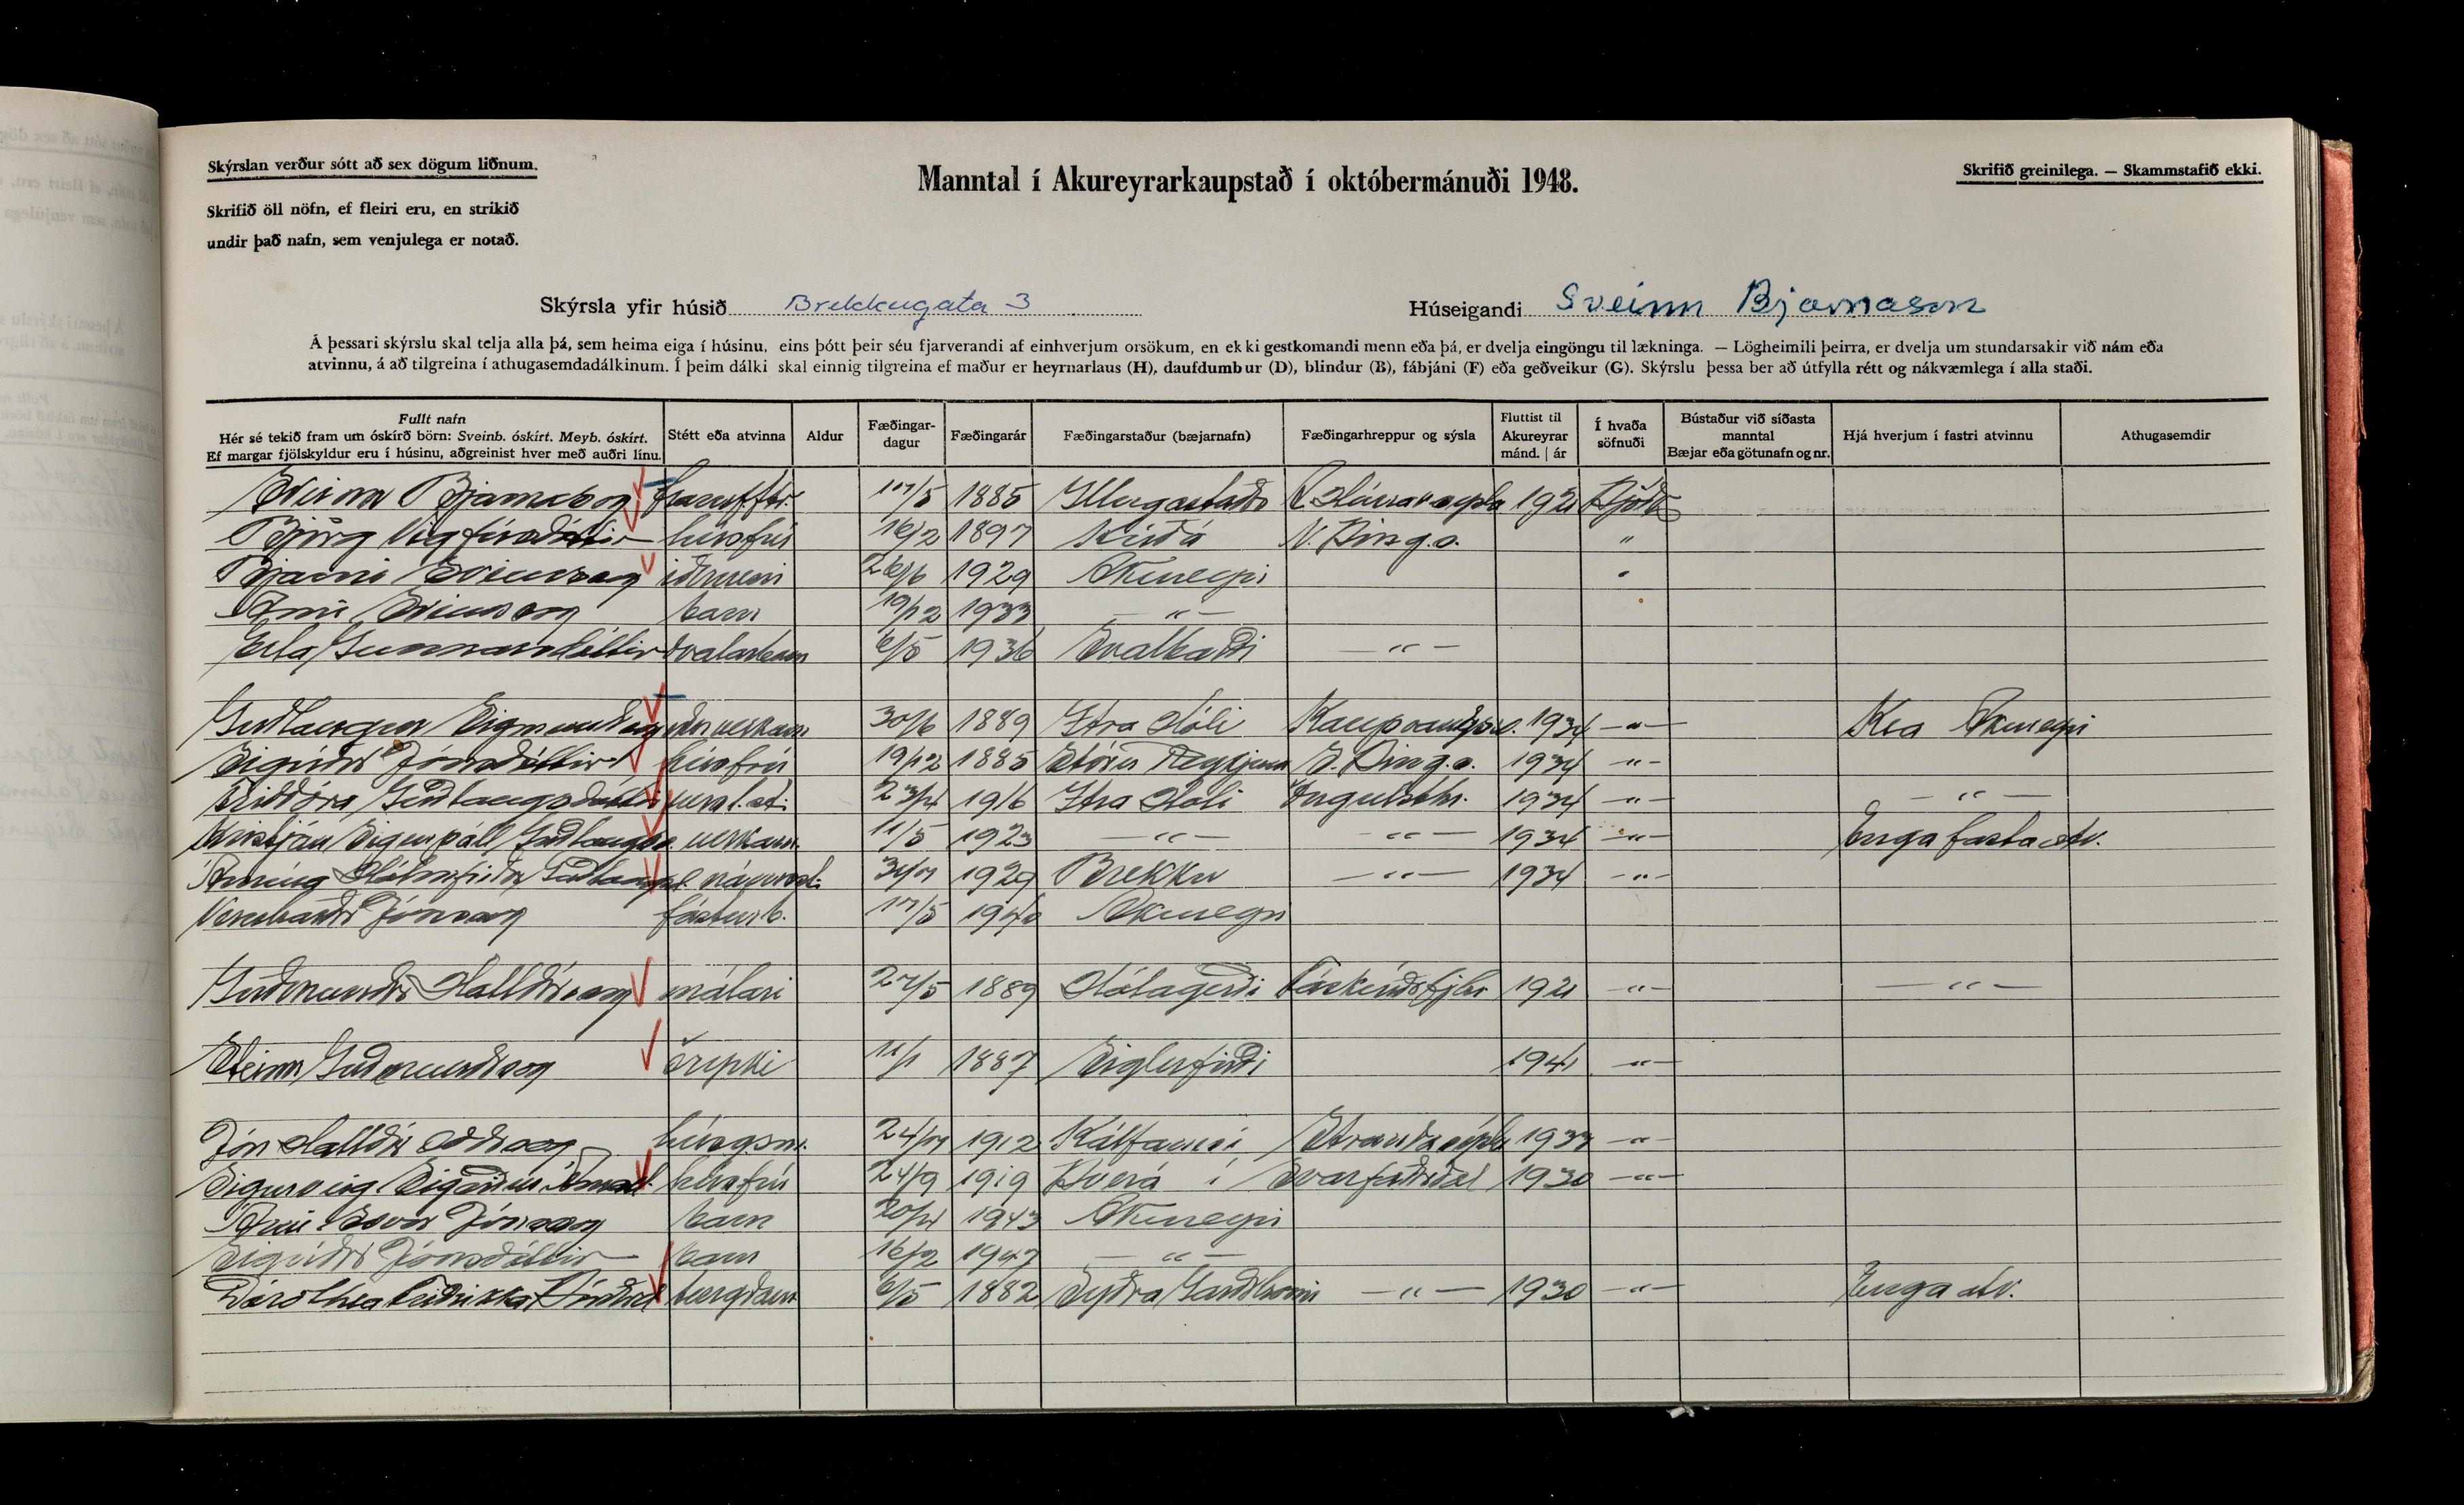 Skýrslan verður sótt að sex dögum liðnum.
Manntal í Akureyrarkaupstað í októbermánuði 1948.
Skrifið greinilega. — Skammstafið ekki.
Skrifið öll nöfn, ef fleiri eru, en strikið
undir það nafn, sem venjulega er notað.
Skýrsla yfir húsið Brekkugata 3 Húseigandi Sveinn Bjarnason
Á þessari skýrslu skal telja alla þá, sem heima eiga í húsinu, eins þótt þeir séu fjarverandi af einhverjum orsökum, en ekki gestkomandi menn eða þá, er dvelja eingöngu til lækninga. — Lögheimili þeirra, er dvelja um stundarsakir við nám eða
atvinnu, á að tilgreina í athugasemdadálkinum. Í þeim dálki skal einnig tilgreina ef maður er heyrnarlaus (H), daufdumbur (D), blindur (B), fábjáni (F) eða geðveikur (G). Skýrslu þessa ber að útfylla rétt og nákvæmlega í alla staði.
Fullt nafn
Hér sé tekið fram um óskírð börn: Sveinb. óskírt. Meyb. óskírt.
Ef margar fjölskyldur eru í húsinu, aðgreinist hver með auðri línu.
Stétt eða atvinna
Aldur
Fæðingar-
dagur
Fæðingarár
Fæðingarstaður (bæjarnafn)
Fæðingarhreppur og sýsla
Fluttist til
Akureyrar
mánd. | ár
Í hvaða
söfnuði
Bústaður við síðasta
manntal
Bæjar eða götunafn og nr.
Hjá hverjum í fastri atvinnu
Athugasemdir
Sveinn Bjarnason 17/5 1885 Illugastaðir 1921
Björg Vigfúsdóttir húsfrú 16/2 1897 Kúðá N. Þing.s. "
Bjarni Sveinsson 26/6 1929 Akureyri "
Árni Sveinsson barn 19/12 1933 — " —
Erla Gunnarsdóttir dvalarbarn 6/5 1936 Svalbarði — " —
Guðlaugur Sigmundsson 30/6 1889 Ytra Hóli 1934 — " — Kea Akureyri
Sigríður Jónsdóttir húsfrú 19/12 1885 Stóru Reykjum S. Þing.s. 1934 — " —
Guðlaugsdóttir 23/4 1916 Ytra Hóli Öngulsthr. 1934 — " — — " —
Kristján Sigurpáll Guðlaugss. verkam. 11/5 1923 — " — — " — 1934 — " — Enga fasta atv.
Hólmfríður Guðlaugsd. 1929 Brekku — " — 1934 — " —
Vernharður Jónsson fósturb. 17/5 1940 Akureyri
Guðmundur Halldórsson málari 27/5 1889 Hólagerði Fáskrúðsfjhr 1921 — " — — " —
Steinn Guðmundsson öryrki 11/1 1887 Siglufirði 1941 — " —
Jón Halldór Oddsson húsgsm. 24/7 1912 Kálfanesi Strandasýslu 1933 — " —
Sigurveig Sigríður húsfrú 24/9 1919 Þverá í Svarfaðardal 1930 — " —
Árni Ævar Jónsson barn 20/4 1943 Akureyri
Sigríður Jónsdóttir barn 16/2 1947 — " —
Dórothea Friðrikka Þórðard 6/5 1882 Syðra Garðshorni — " — 1930 — " — Enga atv.